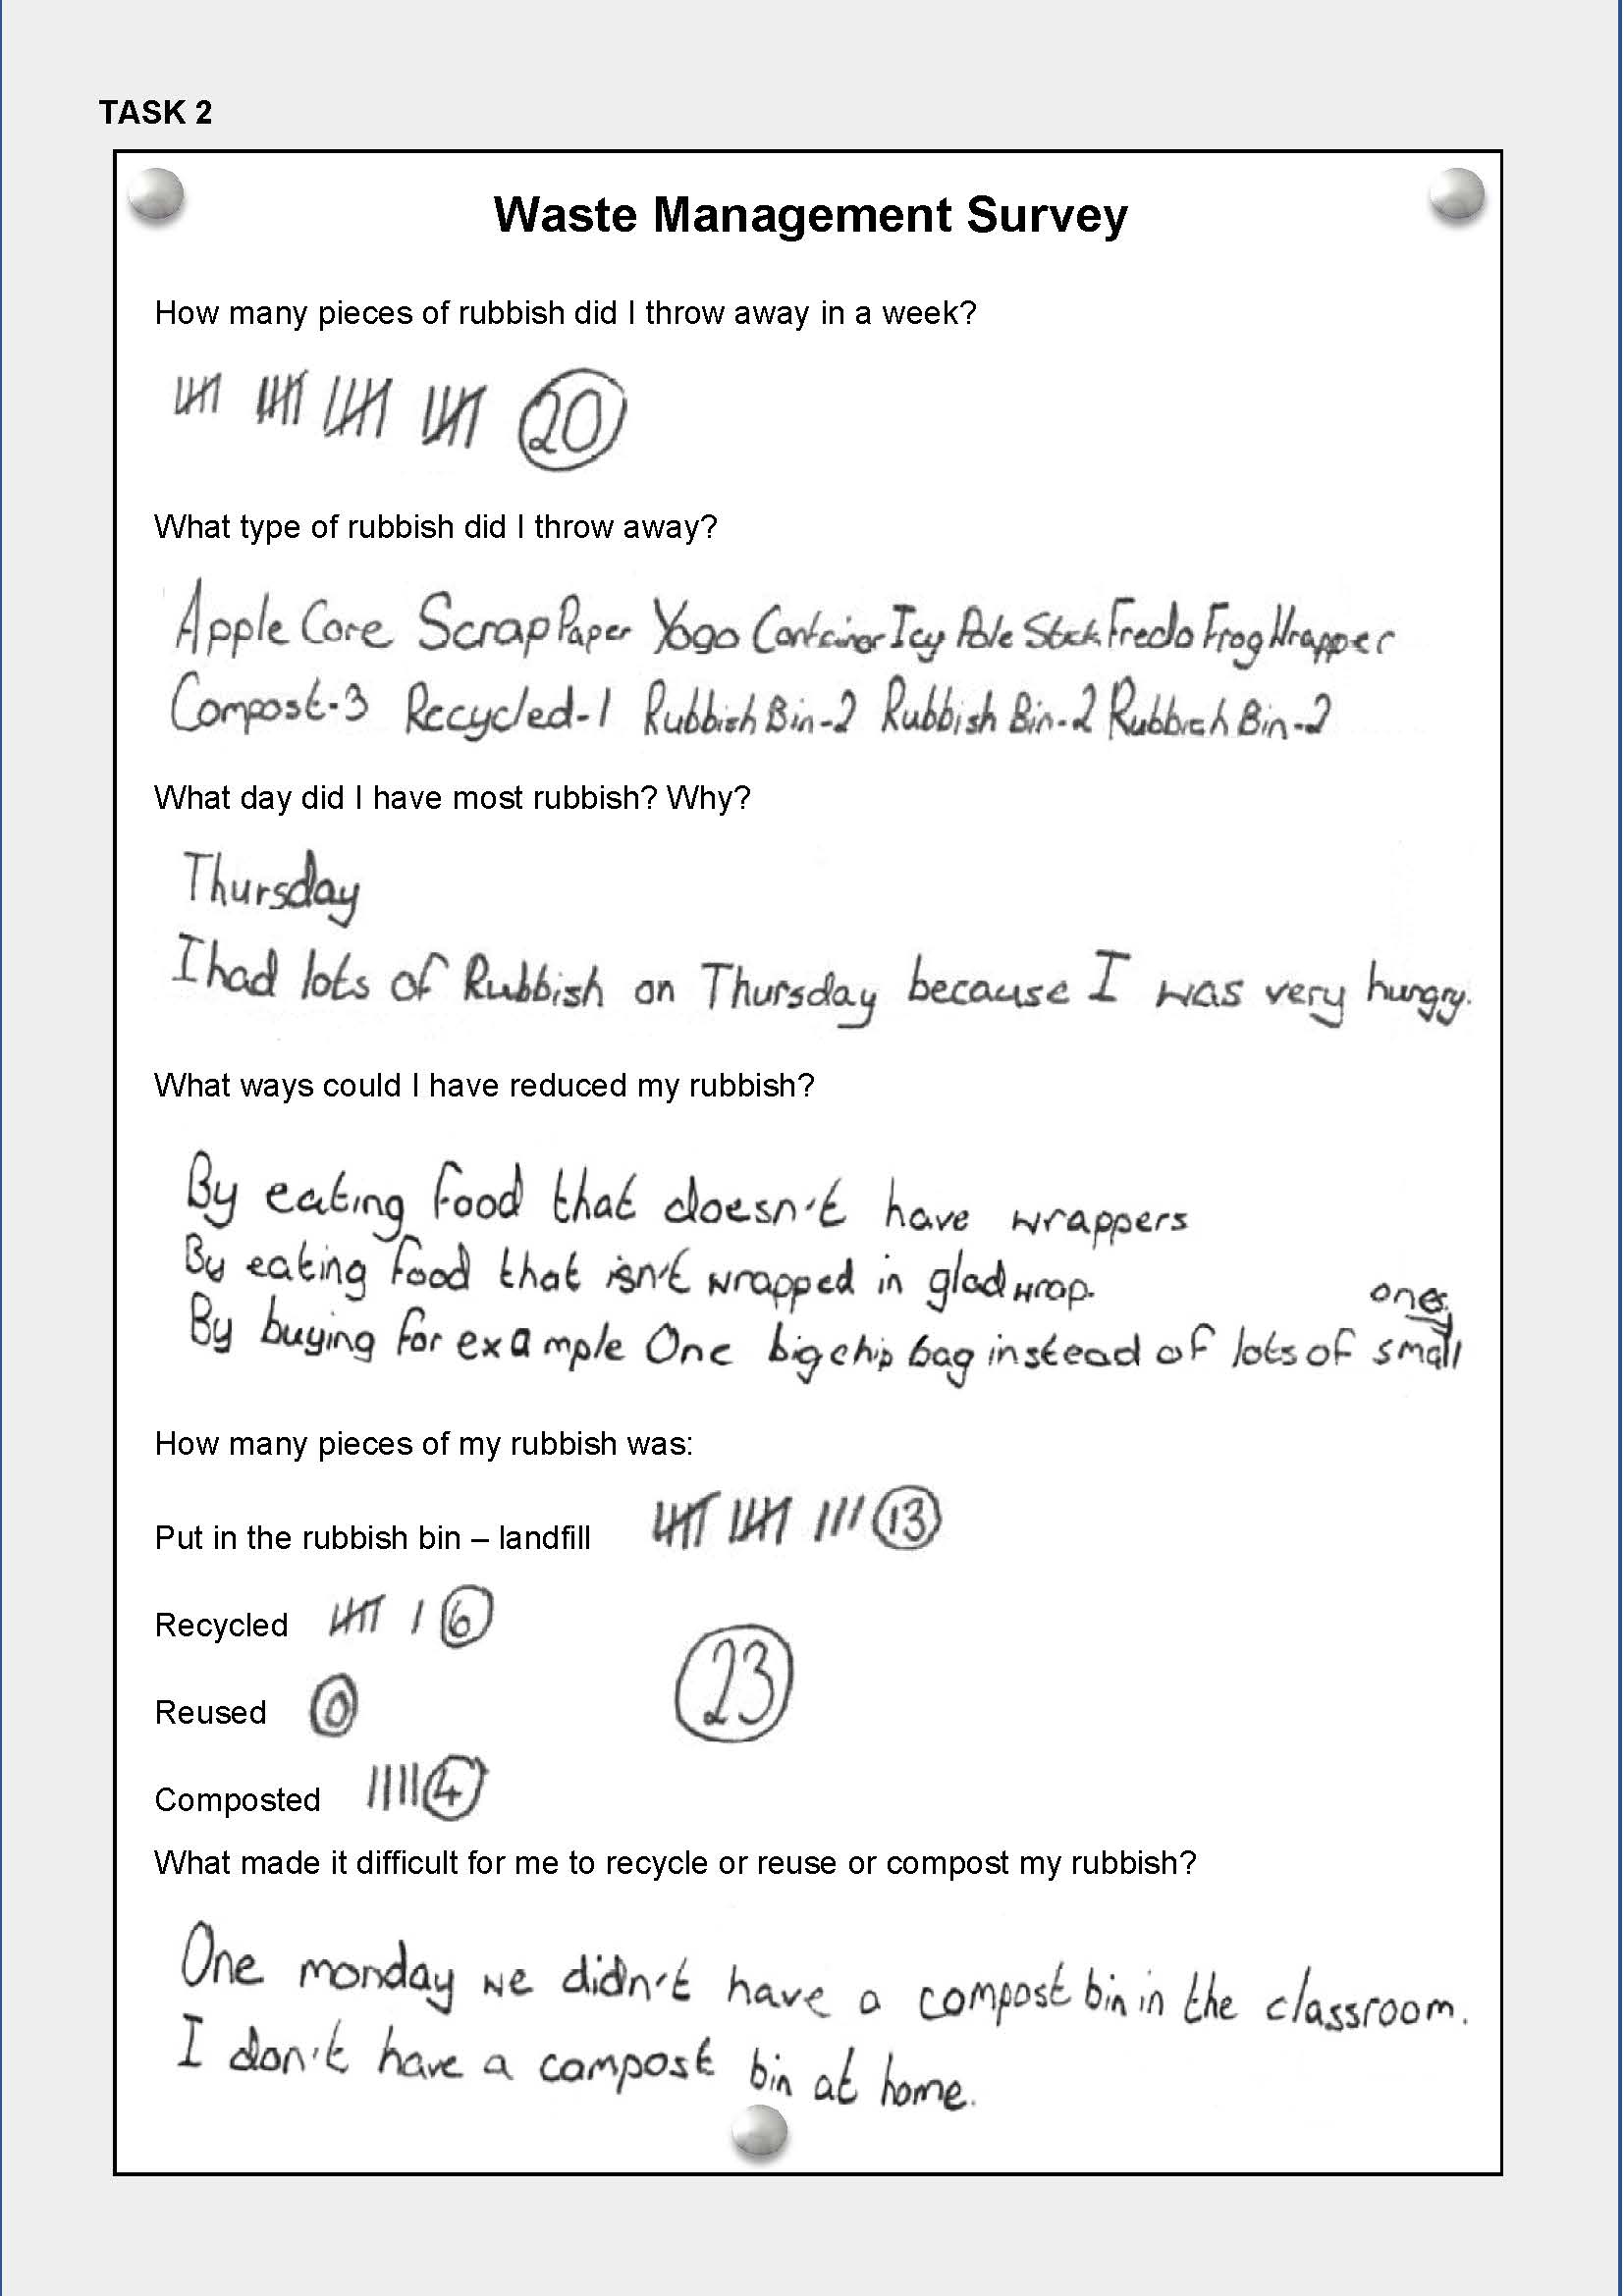 TASK 2
Waste Management Survey
How many pieces of rubbish did I throw away in a week?
20
What type of rubbish did I throw away?
Apple Core Scrap Paper Yogo Container Icy Pole Stick Fredo Frog Wrapper
Compost-3 Recycled-1 Rubbish Bin-2 Rubbish Bin-2 Rubbish Bin-2
What day did I have most rubbish? Why?
Thursday
I had lots of Rubbish on Thursday because I was very hungry.
What ways could I have reduced my rubbish?
By eating food that doesn't have wrappers
By eating food that isn't wrapped in glad wrap.
By buying for example One big chip bag instead of lots of small ones
How many pieces of my rubbish was:
Put in the rubbish bin – landfill 13
Recycled 6
23
Reused 0
Composted 4
What made it difficult for me to recycle or reuse or compost my rubbish?
One monday we didn't have a compost bin in the classroom.
I don't have a compost bin at home.